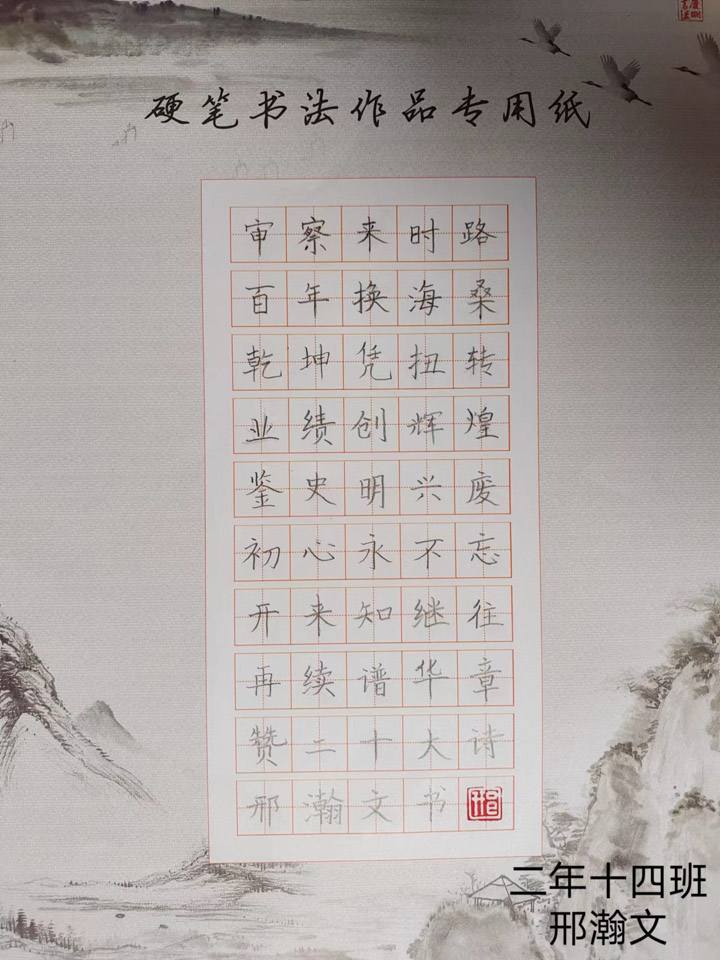 硬笔书法作品专用纸
审察来时路
百年换海桑
乾坤凭扭转
业绩创辉煌
鉴史明兴废
初心永不忘
开来知继往
再续谱华章
赞二十大诗
邢瀚文书
邢
二年十四班
邢瀚文